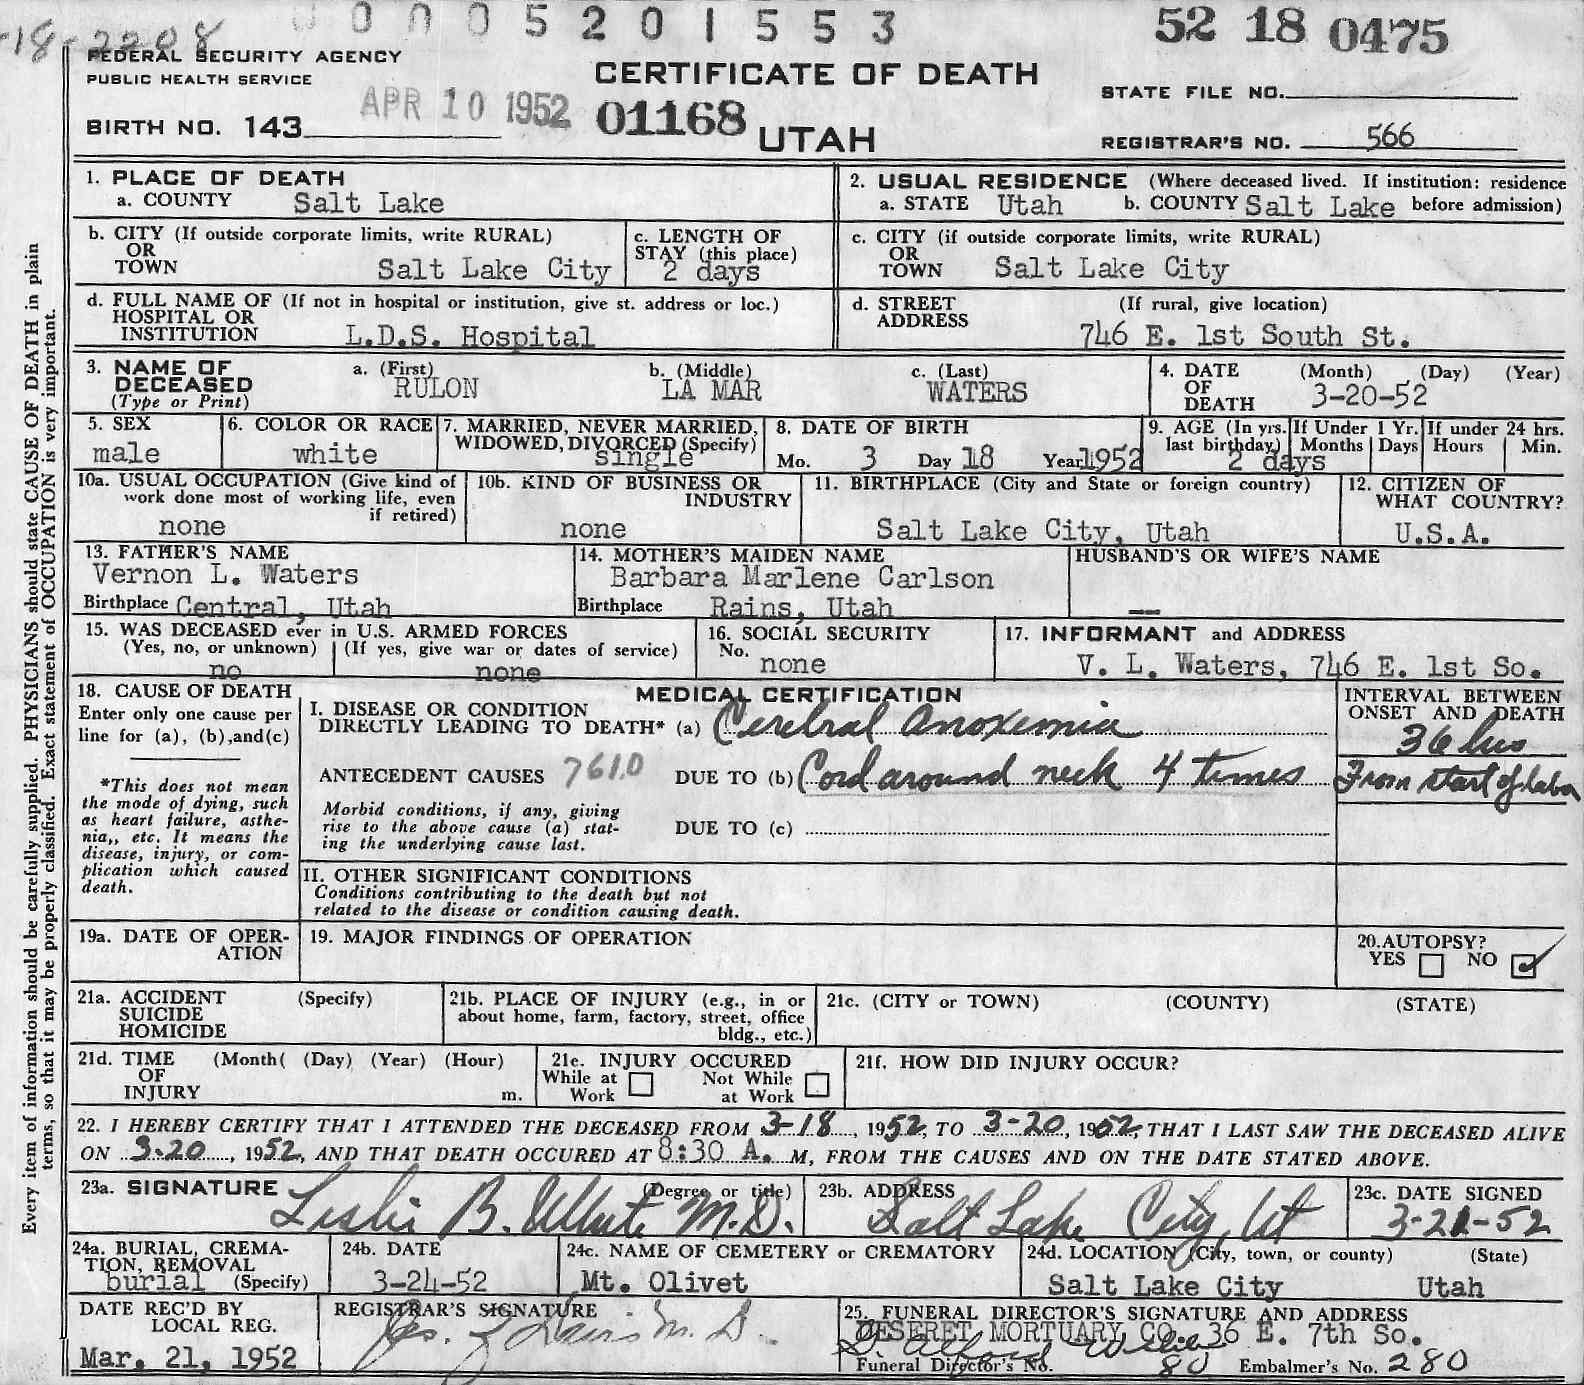 -18-2208 0005201553 52 18 0475
FEDERAL SECURITY AGENCY
PUBLIC HEALTH SERVICE
CERTIFICATE OF DEATH
STATE FILE NO.
APR 10 1952 01168
BIRTH NO. 143
UTAH
REGISTRAR'S NO. 566
Every item of information should be carefully supplied. PHYSICIANS should state CAUSE OF DEATH in plain
terms, so that it may be properly classified. Exact statement of OCCUPATION is very important.
1. PLACE OF DEATH
a. COUNTY Salt Lake
2. USUAL RESIDENCE (Where deceased lived. If institution: residence
a. STATE Utah b. COUNTY Salt Lake before admission)
b. CITY (If outside corporate limits, write RURAL)
OR
TOWN Salt Lake City
c. LENGTH OF
STAY (this place)
2 days
c. CITY (if outside corporate limits, write RURAL)
OR
TOWN Salt Lake City
d. FULL NAME OF (If not in hospital or institution, give st. address or loc.)
HOSPITAL OR
INSTITUTION L.D.S. Hospital
d. STREET (If rural, give location)
ADDRESS
746 E. 1st South St.
3. NAME OF
DECEASED
(Type or Print)
a. (First)
RULON
b. (Middle)
LA MAR
c. (Last)
WATERS
4. DATE (Month) (Day) (Year)
OF
DEATH 3-20-52
5. SEX
male
6. COLOR OR RACE
white
7. MARRIED, NEVER MARRIED,
WIDOWED, DIVORCED (Specify)
single
8. DATE OF BIRTH
Mo. 3 Day 18 Year 1952
9. AGE (In yrs. last birthday)
If Under 1 Yr.
Months Days
If under 24 hrs.
Hours Min.
2 days
10a. USUAL OCCUPATION (Give kind of
work done most of working life, even
if retired)
none
10b. KIND OF BUSINESS OR
INDUSTRY
none
11. BIRTHPLACE (City and State or foreign country)
Salt Lake City, Utah
12. CITIZEN OF
WHAT COUNTRY?
U.S.A.
13. FATHER'S NAME
Vernon L. Waters
Birthplace Central, Utah
14. MOTHER'S MAIDEN NAME
Barbara Marlene Carlson
Birthplace Rains, Utah
HUSBAND'S OR WIFE'S NAME
—
15. WAS DECEASED ever in U.S. ARMED FORCES
(Yes, no, or unknown) (If yes, give war or dates of service)
no none
16. SOCIAL SECURITY
No.
none
17. INFORMANT and ADDRESS
V. L. Waters, 746 E. 1st So.
18. CAUSE OF DEATH
Enter only one cause per
line for (a), (b),and(c)
*This does not mean
the mode of dying, such
as heart failure, asthe-
nia,, etc. It means the
disease, injury, or com-
plication which caused
death.
MEDICAL CERTIFICATION
I. DISEASE OR CONDITION
DIRECTLY LEADING TO DEATH* (a) Cerebral anoxemia
ANTECEDENT CAUSES 761.0 DUE TO (b) Cord around neck 4 times
Morbid conditions, if any, giving
rise to the above cause (a) stat-
ing the underlying cause last.
DUE TO (c)
II. OTHER SIGNIFICANT CONDITIONS
Conditions contributing to the death but not
related to the disease or condition causing death.
INTERVAL BETWEEN
ONSET AND DEATH
36 hrs
From start of labor
19a. DATE OF OPER-
ATION
19. MAJOR FINDINGS OF OPERATION
20.AUTOPSY?
YES NO ✓
21a. ACCIDENT (Specify)
SUICIDE
HOMICIDE
21b. PLACE OF INJURY (e.g., in or
about home, farm, factory, street, office
bldg., etc.)
21c. (CITY or TOWN) (COUNTY) (STATE)
21d. TIME (Month( (Day) (Year) (Hour)
OF
INJURY m.
21e. INJURY OCCURED
While at Work
Not While at Work
21f. HOW DID INJURY OCCUR?
22. I HEREBY CERTIFY THAT I ATTENDED THE DECEASED FROM 3-18, 1952, TO 3-20, 1952, THAT I LAST SAW THE DECEASED ALIVE
ON 3-20, 1952, AND THAT DEATH OCCURED AT 8:30 A. M, FROM THE CAUSES AND ON THE DATE STATED ABOVE.
23a. SIGNATURE (Degree or title)
Leslie B. White M.D.
23b. ADDRESS
Salt Lake City, Ut
23c. DATE SIGNED
3-21-52
24a. BURIAL, CREMA-
TION, REMOVAL
burial (Specify)
24b. DATE
3-24-52
24c. NAME OF CEMETERY or CREMATORY
Mt. Olivet
24d. LOCATION (City, town, or county) (State)
Salt Lake City Utah
DATE REC'D BY
LOCAL REG.
Mar. 21, 1952
REGISTRAR'S SIGNATURE
M. D.
25. FUNERAL DIRECTOR'S SIGNATURE AND ADDRESS
DESERET MORTUARY CO. 36 E. 7th So.
Funeral Director's No. 80 Embalmer's No. 280